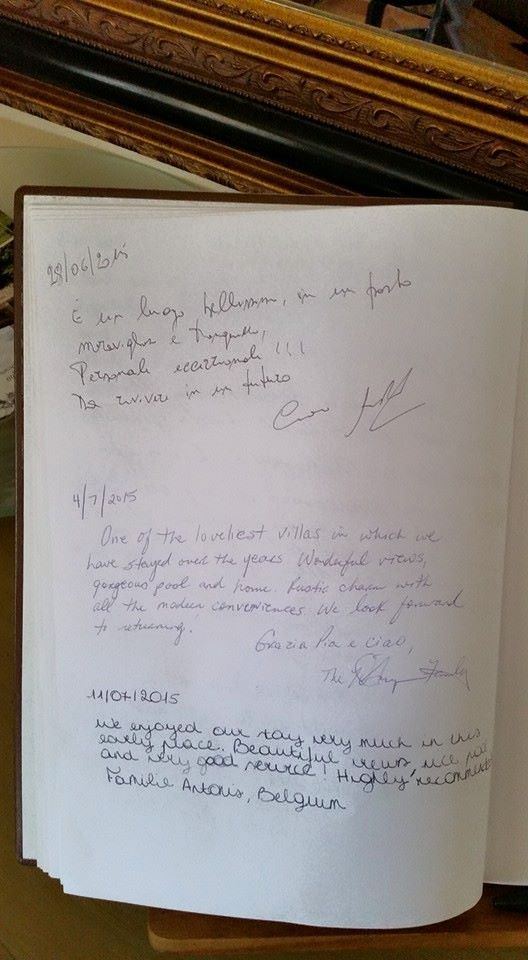 28/06/2015
È un luogo bellissimo, in un posto
meraviglioso e tranquillo,
Personale eccezionale !!!
Da rivivere in un futuro
4/7/2015
One of the loveliest villas in which we
have stayed over the years. Wonderful views,
gorgeous pool and home. Rustic charm with
all the modern conveniences. We look forward
to returning.
Grazia Pia e ciao,
The Family
11/07/2015
We enjoyed our stay very much in this
lovely place. Beautiful views nice pool
and very good service! Highly recommended
Familie Antonis, Belgium